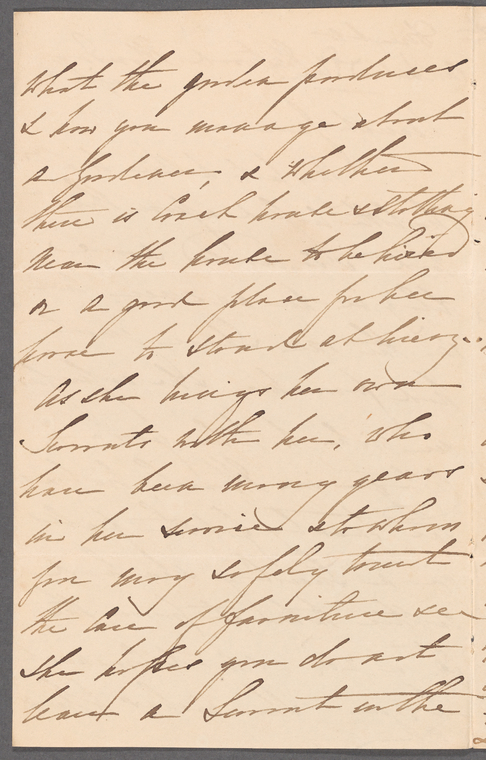 what the garden produces
& how you manage about
a Gardener, & whether
there is Coach house & Stabling
near the house to be hired
or a good place for her
horse to stand at livery.
As she brings her own
Servants with her, who
have been many years
in her service & to whom
you may safely trust
the care of furniture &c
she hopes you do not
leave a Servant in the